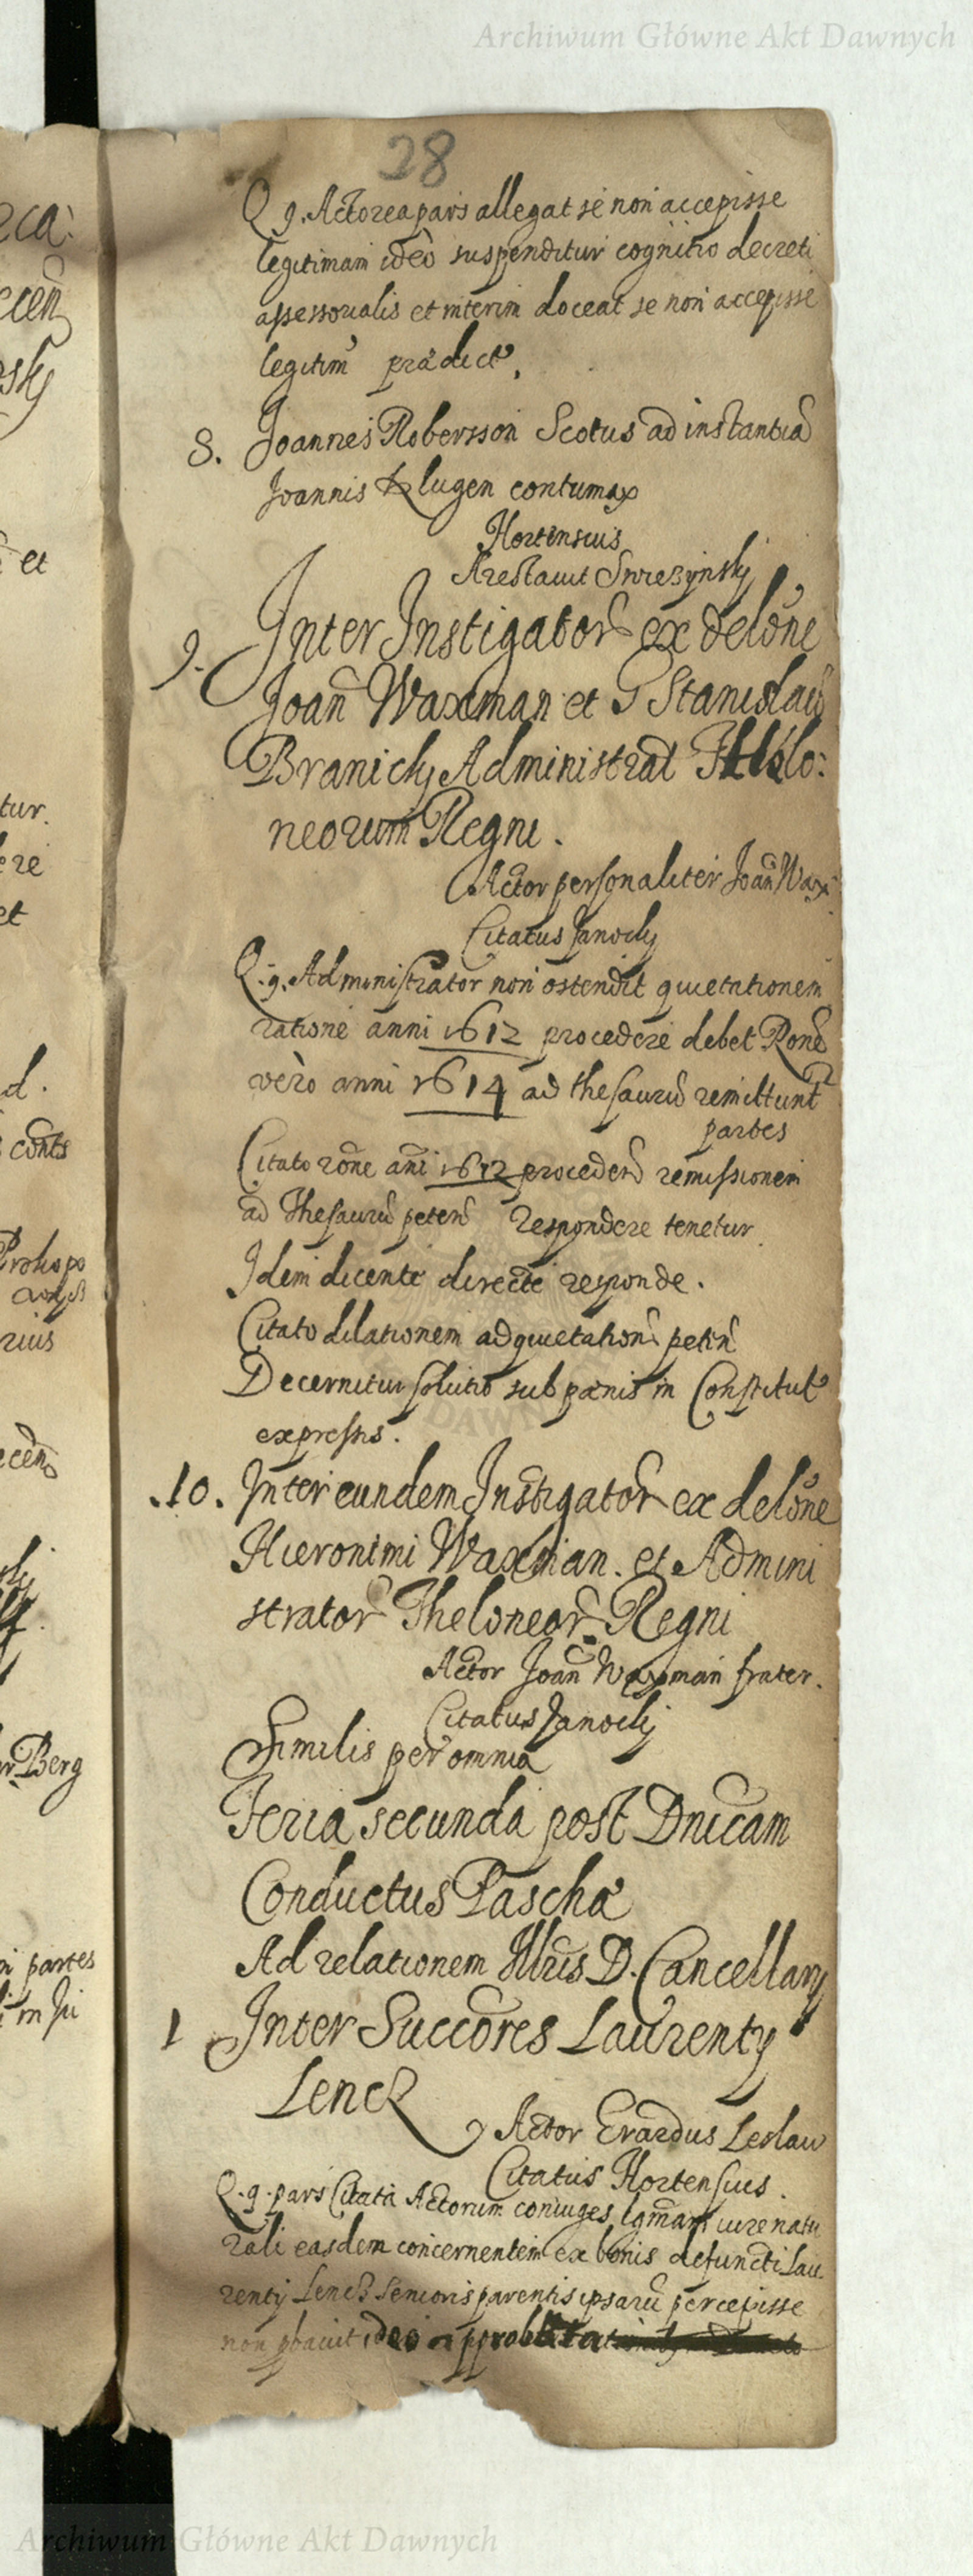 Archiwum Główne Akt Dawnych
28
Q. g. Actorea pars allegat se non accepisse
legitimam ideo suspenditur cognitio decreti
assessorialis et interim doceat se non accepisse
legitim prædict.
8. Joannes Robersson Scotus ad instantiã
Joannis Klugen contumax
Hortensius
Arestavit
9. Inter Instigatorẽ ex delõne
Joañ Waxman et G Stanislaũ
Branicky Administrat Thelo:
neorum Regni.
Actor personaliter Joañ Wax
Citatus Janocky
Q. g. Administrator non ostendit quietationem
ratione anni 1612 procedere debet Rone
vero anni 1614 ad thesaurũ remittunt
partes
Citato rõne añi 1612 procedere remissionem
ad Thesaurũ peten respondere tenetur
Idem dicente directe responde.
Citato dilationem ad quietation petin
Decernitur solutio sub pænis in Constitut
expressis.
.10. Inter eundem Instigator ex delõne
Hieronimi Waxman. et Admini
strator Theloneor. Regni
Actor Joañ Waxman frater.
Citatus Janocky
Similis per omnia
Feria secunda post Dnicam
Conductus Paschæ
Ad relationem Illris D. Cancellarij
1 Inter Succõres Laurentij
Lenck
Actor Erardus Leslaw
Citatus Hortensius.
Q. g. pars Citata Actorum coniuges lgmam iure natu
rali easdem concernentem ex bonis defuncti Lau-
rentij Lenck senioris parentis ipsarũ percepisse
non pbavit ideo
Archiwum Główne Akt Dawnych